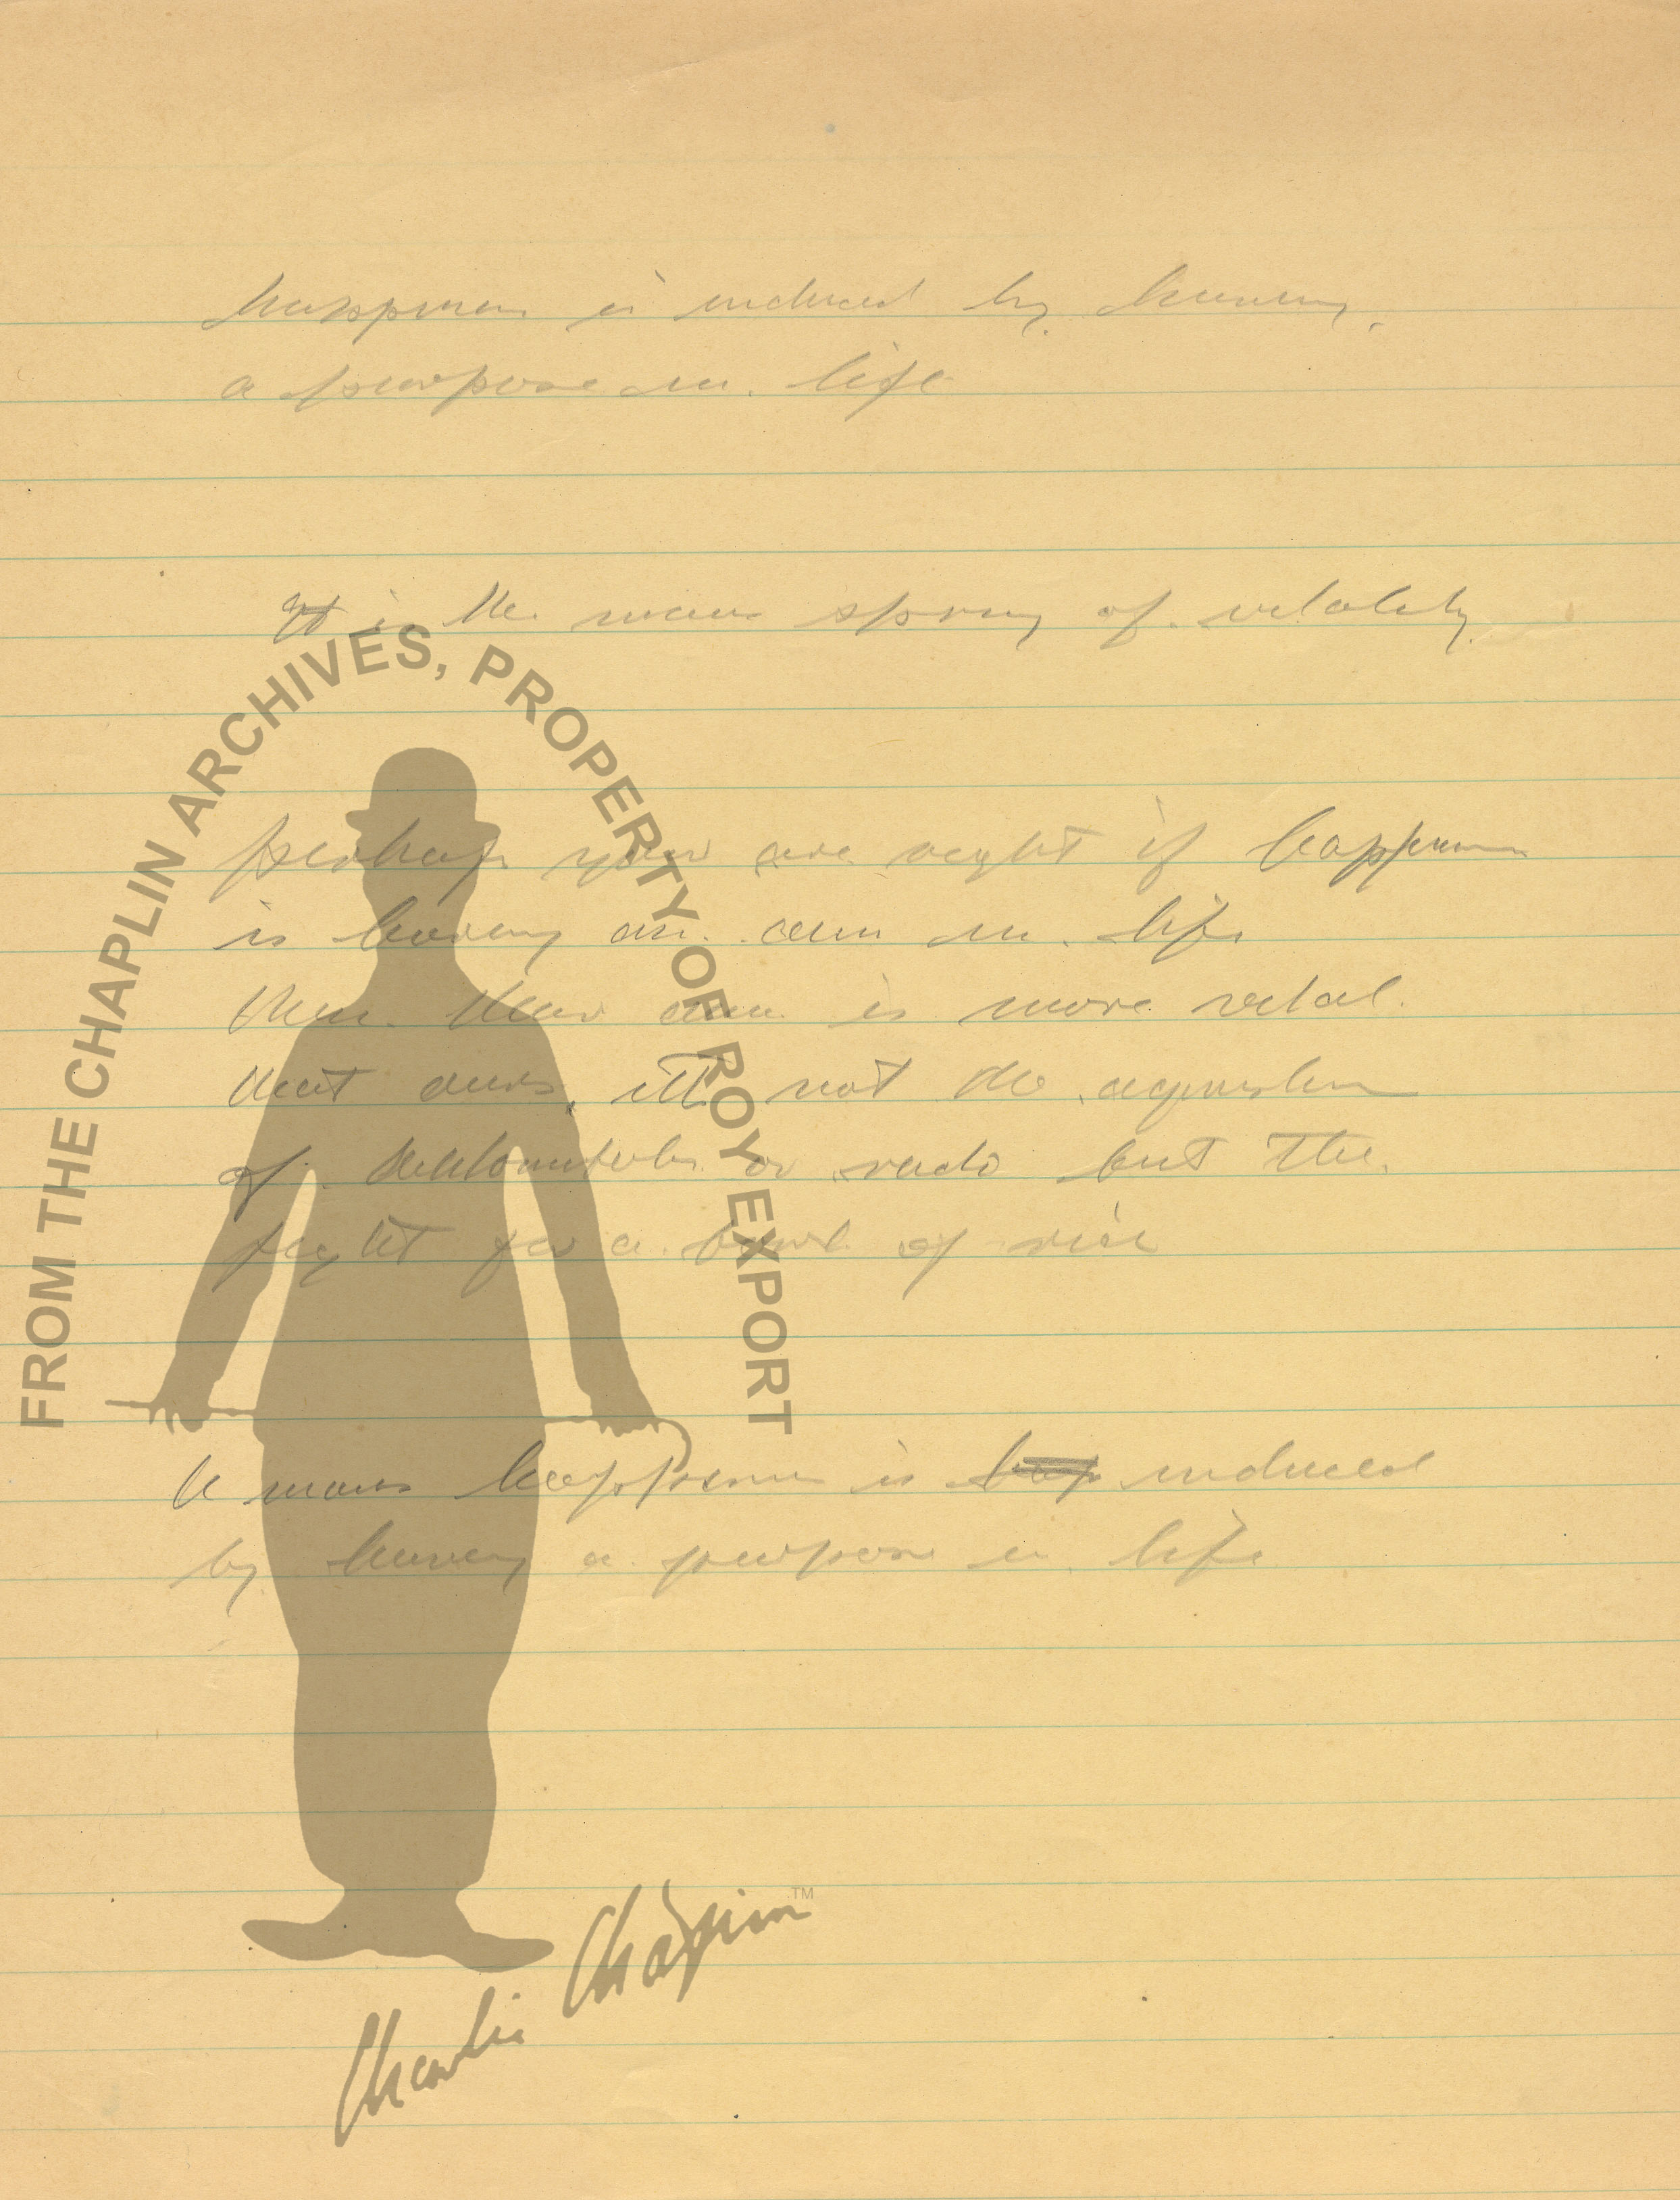 happiness is induced by having
a purpose in life
It is the main spring of vitality
perhaps you are right if happiness
is having an aim in life
then their aim is more vital
that ours, it not the aquisition
of or radio but the
fight for a bowl of rice
mans happiness is hap induced
by having a purpose in life
FROM THE CHAPLIN ARCHIVES, PROPERTY OF ROY EXPORT
Charlie Chaplin™